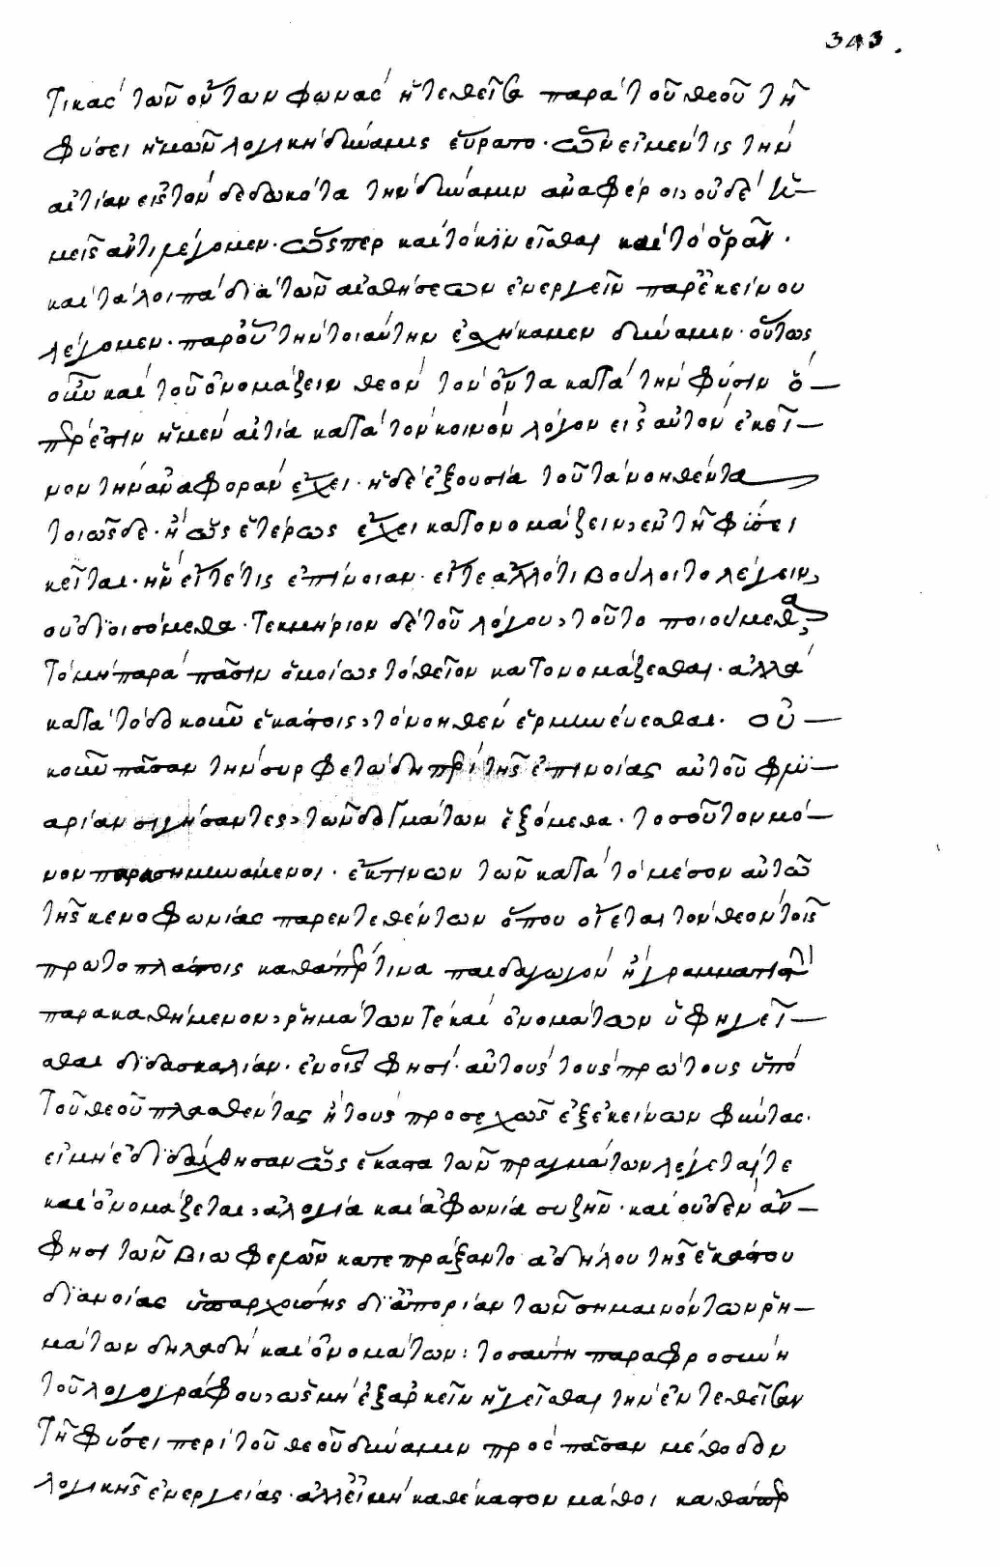 343.
τικὰς τῶν ὄντων φωνὰς ἡ τεθεῖσα παρὰ τοῦ θεοῦ τῆ
φύσει ἡμῶν λογικὴ δύναμις εὕρατο· ὧν εἰ μέν τις τὴν
αἰτίαν εἰς τὸν δεδωκότα τὴν δύναμιν ἀναφέροι, οὐδὲ ἡ-
μεῖς ἀντιλέγομεν· ὥσπερ καὶ τὸ κινεῖσθαι καὶ τὸ ὁρᾶν·
καὶ τὰ λοιπὰ διὰ τῶν αἰσθήσεων ἐνεργεῖν παρ' ἐκείνου
λέγομεν· παρ' οὗ τὴν τοιαύτην ἐσχήκαμεν δύναμιν· οὕτως
οὖν καὶ τοῦ ὀνομάζειν θεὸν τὸν ὄντα κατὰ τὴν φύσιν ὅ-
περ ἐστὶν ἡ μὲν αἰτία κατὰ τὸν κοινὸν λόγον εἰς αὐτὸν ἐκεῖ-
νον τὴν ἀναφορὰν ἔχει· ἡ δὲ ἐξουσία τοῦ τὰ νοηθέντα
τοιῶσδε· ἢ ὡς ἑτέρως ἔχει κατονομάζειν, ἐν τῆ φύσει
κεῖται· ἣν εἴτέ τις ἐπίνοιαν· εἴτε ἄλλό τι βούλοιτο λέγειν,
οὐ διοισόμεθα· τεκμήριον δὲ τοῦ λόγου, τοῦτο ποιούμεθα,
τὸ μὴ παρὰ πᾶσιν ὁμοίως τὸ θεῖον κατονομάζεσθαι· ἀλλὰ
κατὰ τὸ δοκοῦν ἑκάστοις, τὸ νοηθὲν ἑρμηνεύεσθαι. οὐ-
κοῦν πᾶσαν τὴν συρφετώδη περὶ τῆς ἐπινοίας αὐτοῦ φλυ-
αρίαν σιγήσαντες, τῶν δογμάτων ἑξόμεθα· τοσοῦτον μό-
νον παρασημηνάμενοι· ἔκ τινων τῶν κατὰ τὸ μέσον αὐτῶ
τῆς κενοφωνίας παρεντεθέντων ὅπου οἴεται τὸν θεὸν τοῖς
πρωτοπλάστοις καθάπερ τινα παιδαγωγὸν ἢ γραμματιστὴν
παρακαθήμενον, ῥημάτων τε καὶ ὀνομάτων ὑφηγεῖ-
σθαι διδασκαλίαν· ἐν οἷς φησὶ· αὐτοὺς τοὺς πρώτους ὑπὸ
τοῦ θεοῦ πλασθέντας ἢ τοὺς προσεχῶς ἐξ ἐκείνων φύντας·
εἰ μὴ ἐδιδάχθησαν ὡς ἕκαστα τῶν πραγμάτων λέγεταί τε
καὶ ὀνομάζεται, ἀλογία καὶ ἀφωνία συζῆν· καὶ οὐδὲν ἂν-
φησι τῶν βιωφελῶν κατεπράξαντο ἀδήλου τῆς ἑκάστου
διανοίας ὑπαρχούσης δι' ἀπορίαν τῶν σημαινόντων ῥη-
μάτων δηλαδὴ καὶ ὀνομάτων: τοσαύτη παραφροσύνη
τοῦ λογογράφου, ὡς μὴ ἐξαρκεῖν ἡγεῖσθαι τὴν ἐντεθεῖσαν
τῆ φύσει περὶ τοῦ θεοῦ δύναμιν πρὸς πᾶσαν μέθοδον
λογικῆς ἐνεργείας· ἀλλ' εἰ μὴ καθέκαστον μάθοι καθάπερ